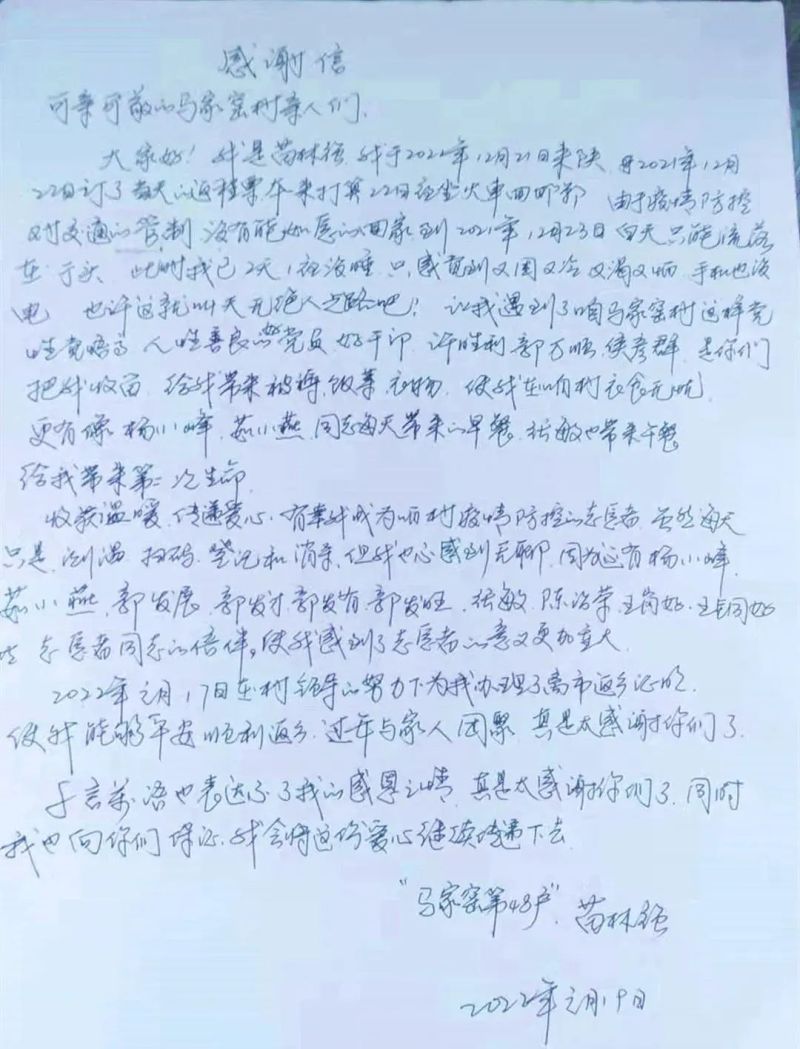 感谢信
可亲可敬的马家窑村亲人们.
大家好！我是苗林强 我于2022年12月21日来陕 并2021年12月
22日订了当天的返程票 本来打算22日夜坐火车回邯郸 由于疫情防控
对交通的管制 没有能如愿的回家 到2021年12月23日白天只能流落
在街头 此时我已2天1夜没睡 只感觉到又困又冷又渴又饿 手机也没
电 也许这就叫天无绝人之路吧！让我遇到了咱马家窑村这样党
性觉悟高 人性善良的党员 好干部 许胜利 郭万顺 侯彦群 是你们
把我收留 给我带来被褥、饭菜、衣物 使我在咱村衣食无忧
更有像杨小峰 茹小燕 同志每天带来的早餐 张敏也带来午餐
给我带来第二次生命
收获温暖 传递爱心 有幸我成为咱村疫情防控的志愿者 虽然每天
只是 测温 扫码 登记和消杀 但我也没感到无聊 因为还有杨小峰
茹小燕 郭发展 郭发才 郭发有 郭发旺 张敏 陈治荣 王岗好 王同好
志愿者同志的陪伴，使我感到了志愿者的意义更加重大
2022年元月17日在村领导的努力下为我办理了离市返乡证明
使我能够平安顺利返乡 过年与家人团聚 真是太感谢你们了.
千言万语也表达不了我的感恩之情 真是太感谢你们了 同时
我也向你们保证 我会将这份爱心继续传递下去
“马家窑第48户”苗林强
2022年元月19日